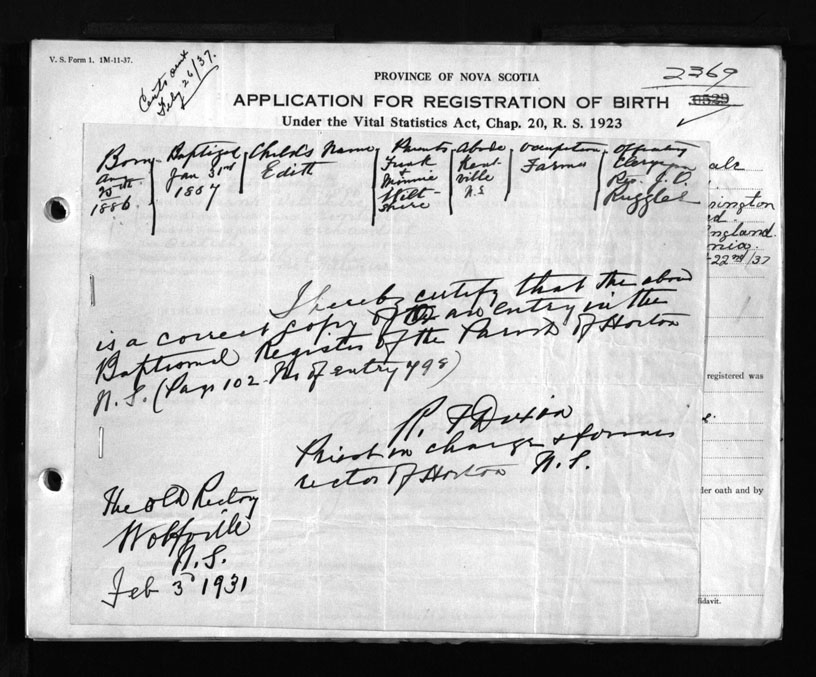 V. S. Form 1. 1M-11-37.
Feby 26/37.
2369
PROVINCE OF NOVA SCOTIA
APPLICATION FOR REGISTRATION OF BIRTH
Under the Vital Statistics Act, Chap. 20, R. S. 1923
Born Baptized Child's Name Parents Abode Occupation Officiating
Aug Jan 31st Edith Frank Kent Farmer Clergyman
25th 1887 & ville Rev. J. O.
1886. Minnie N.S Ruggles
Wilt-
shire
ale
rington
d.
England.
nia.
-22nd/37
I hereby certify that the above
is a correct copy of an entry in the
Baptismal Register of the Parish of Horton
N.S. (Page 102 No of entry 498)
registered was
R. F Dixon
Priest in charge & former
rector of Horton N.S.
der oath and by
The Old Rectory
Wolfville
N.S.
Feb 3 1931
fidavit.